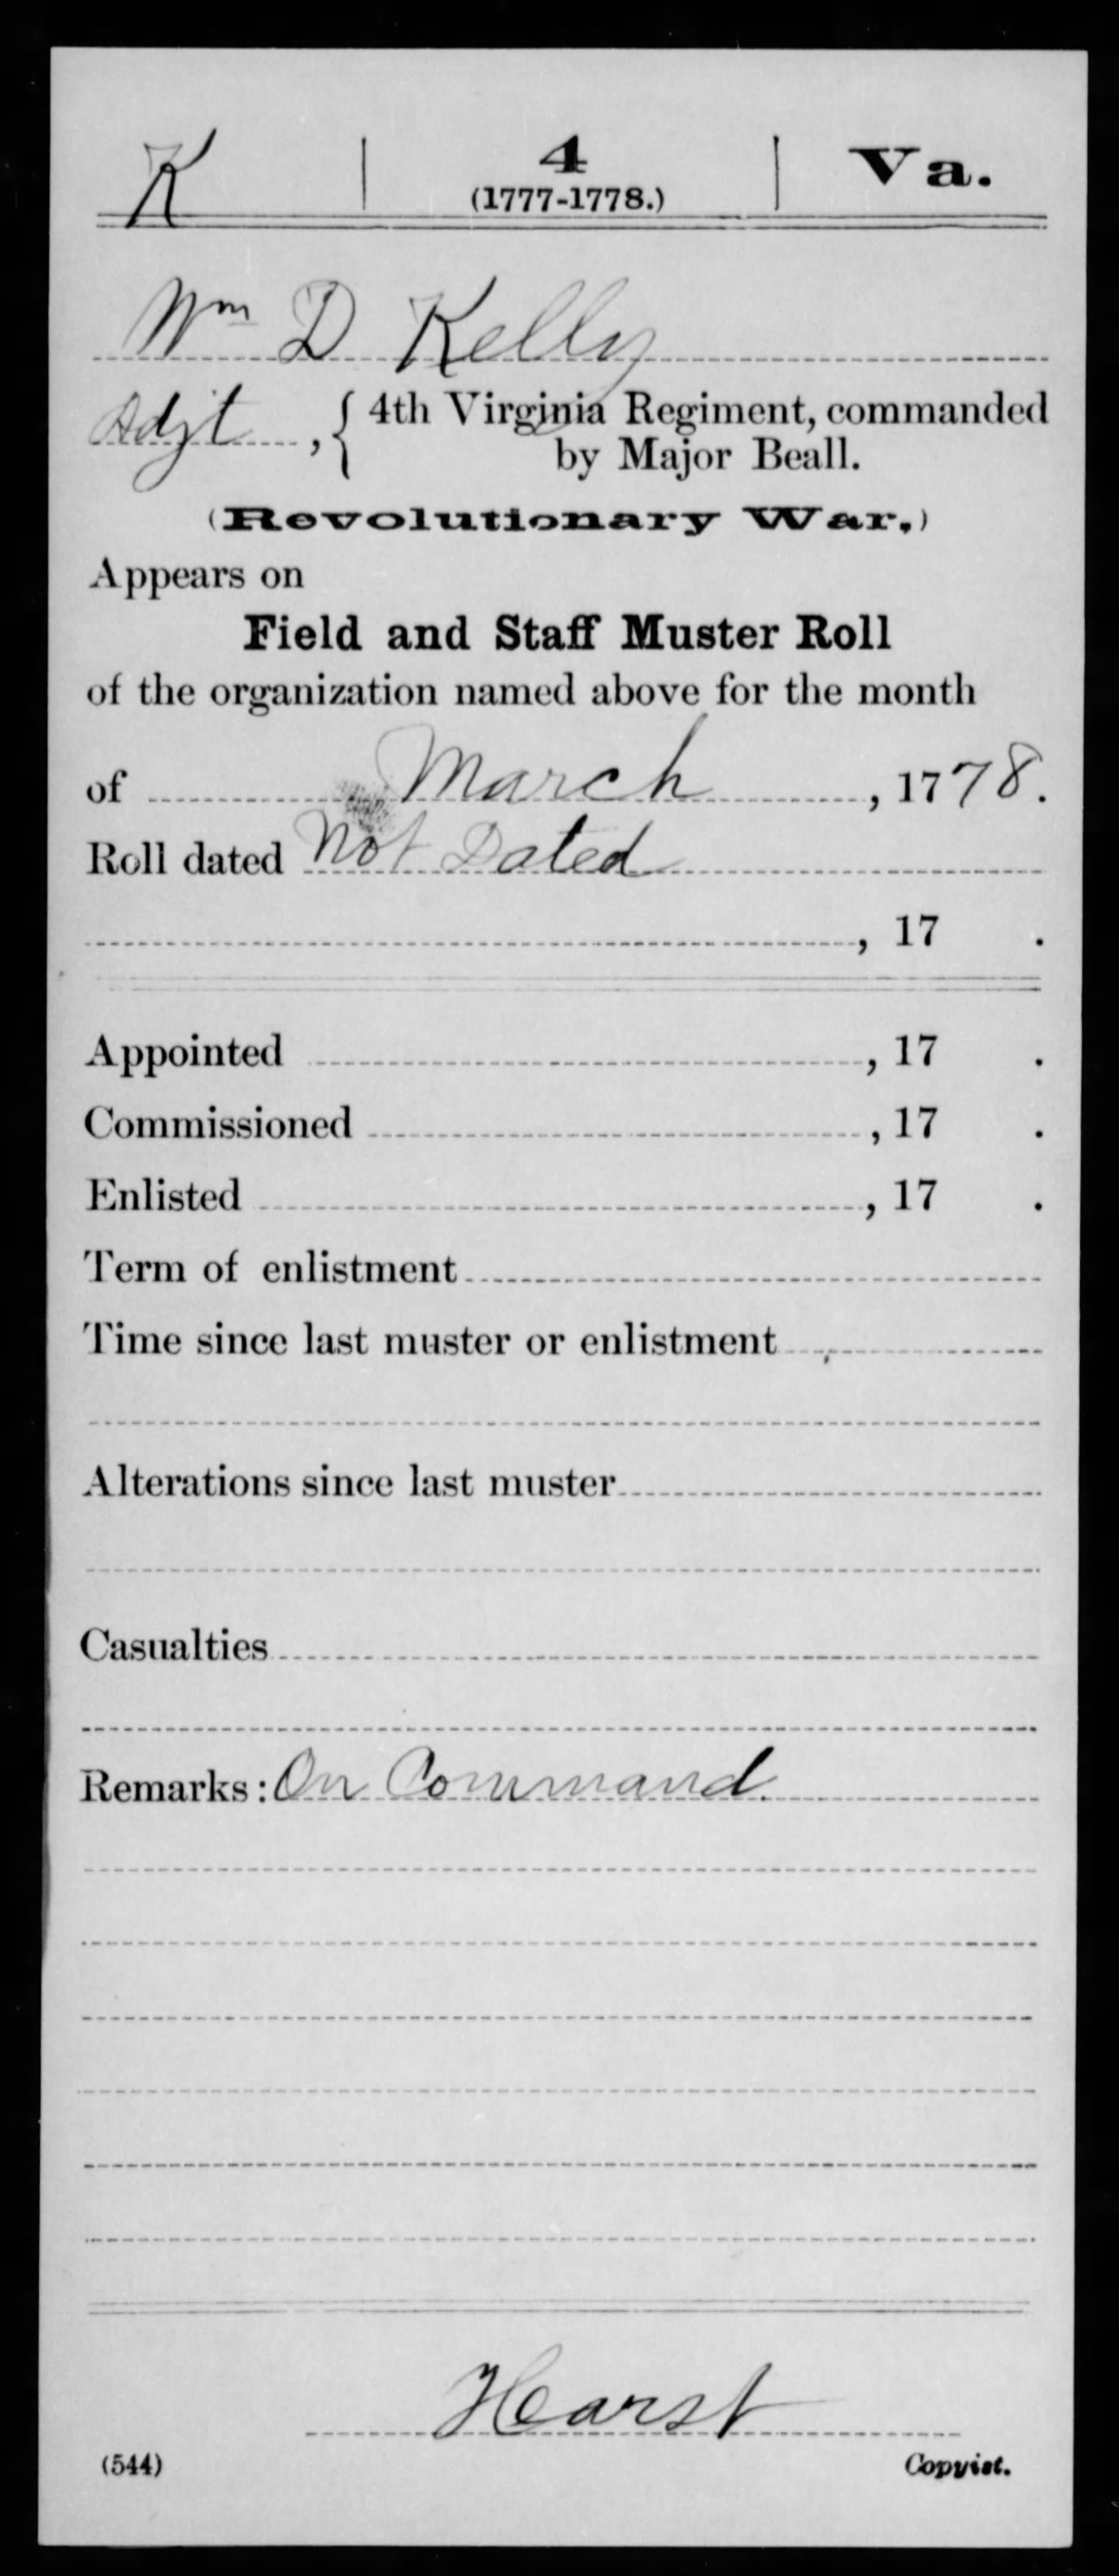 K | 4 | Va.
(1777-1778.)
Wm D Kelly
Adjt, { 4th Virginia Regiment, commanded
by Major Beall.
(Revolutionary War.)
Appears on
Field and Staff Muster Roll
of the organization named above for the month
of March, 1778.
Roll dated Not Dated
, 17 .
Appointed , 17 .
Commissioned , 17 .
Enlisted , 17 .
Term of enlistment
Time since last muster or enlistment
Alterations since last muster
Casualties
Remarks: On Command.
Hearst
(544) Copyist.